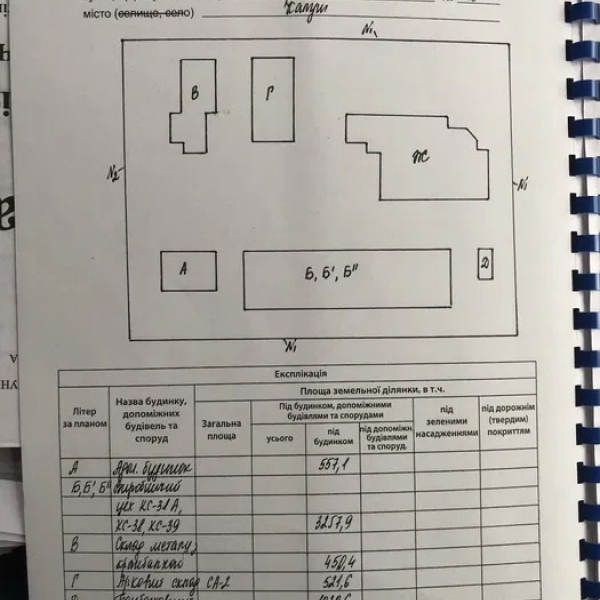 місто (селище, село) Калуш
№1
В
Г
Ж
№2
№1
А
Б, Б', Б"
Д
№1
Експлікація
Літер за планом
Назва будинку, допоміжних будівель та споруд
Площа земельної ділянки, в т.ч.
Загальна площа
Під будинком, допоміжними будівлями та спорудами
усього
під будинком
під допоміжн. будівлями та споруд.
під зеленими насадженнями
під дорожнім (твердим) покриттям
А Адм. будинок 557,1
Б,Б', Б" Виробничий
цех КС-32 А,
КС-38, КС-39 3257,9
В Склад металу з
450,4
Г Арковий склад СА-2 521,6